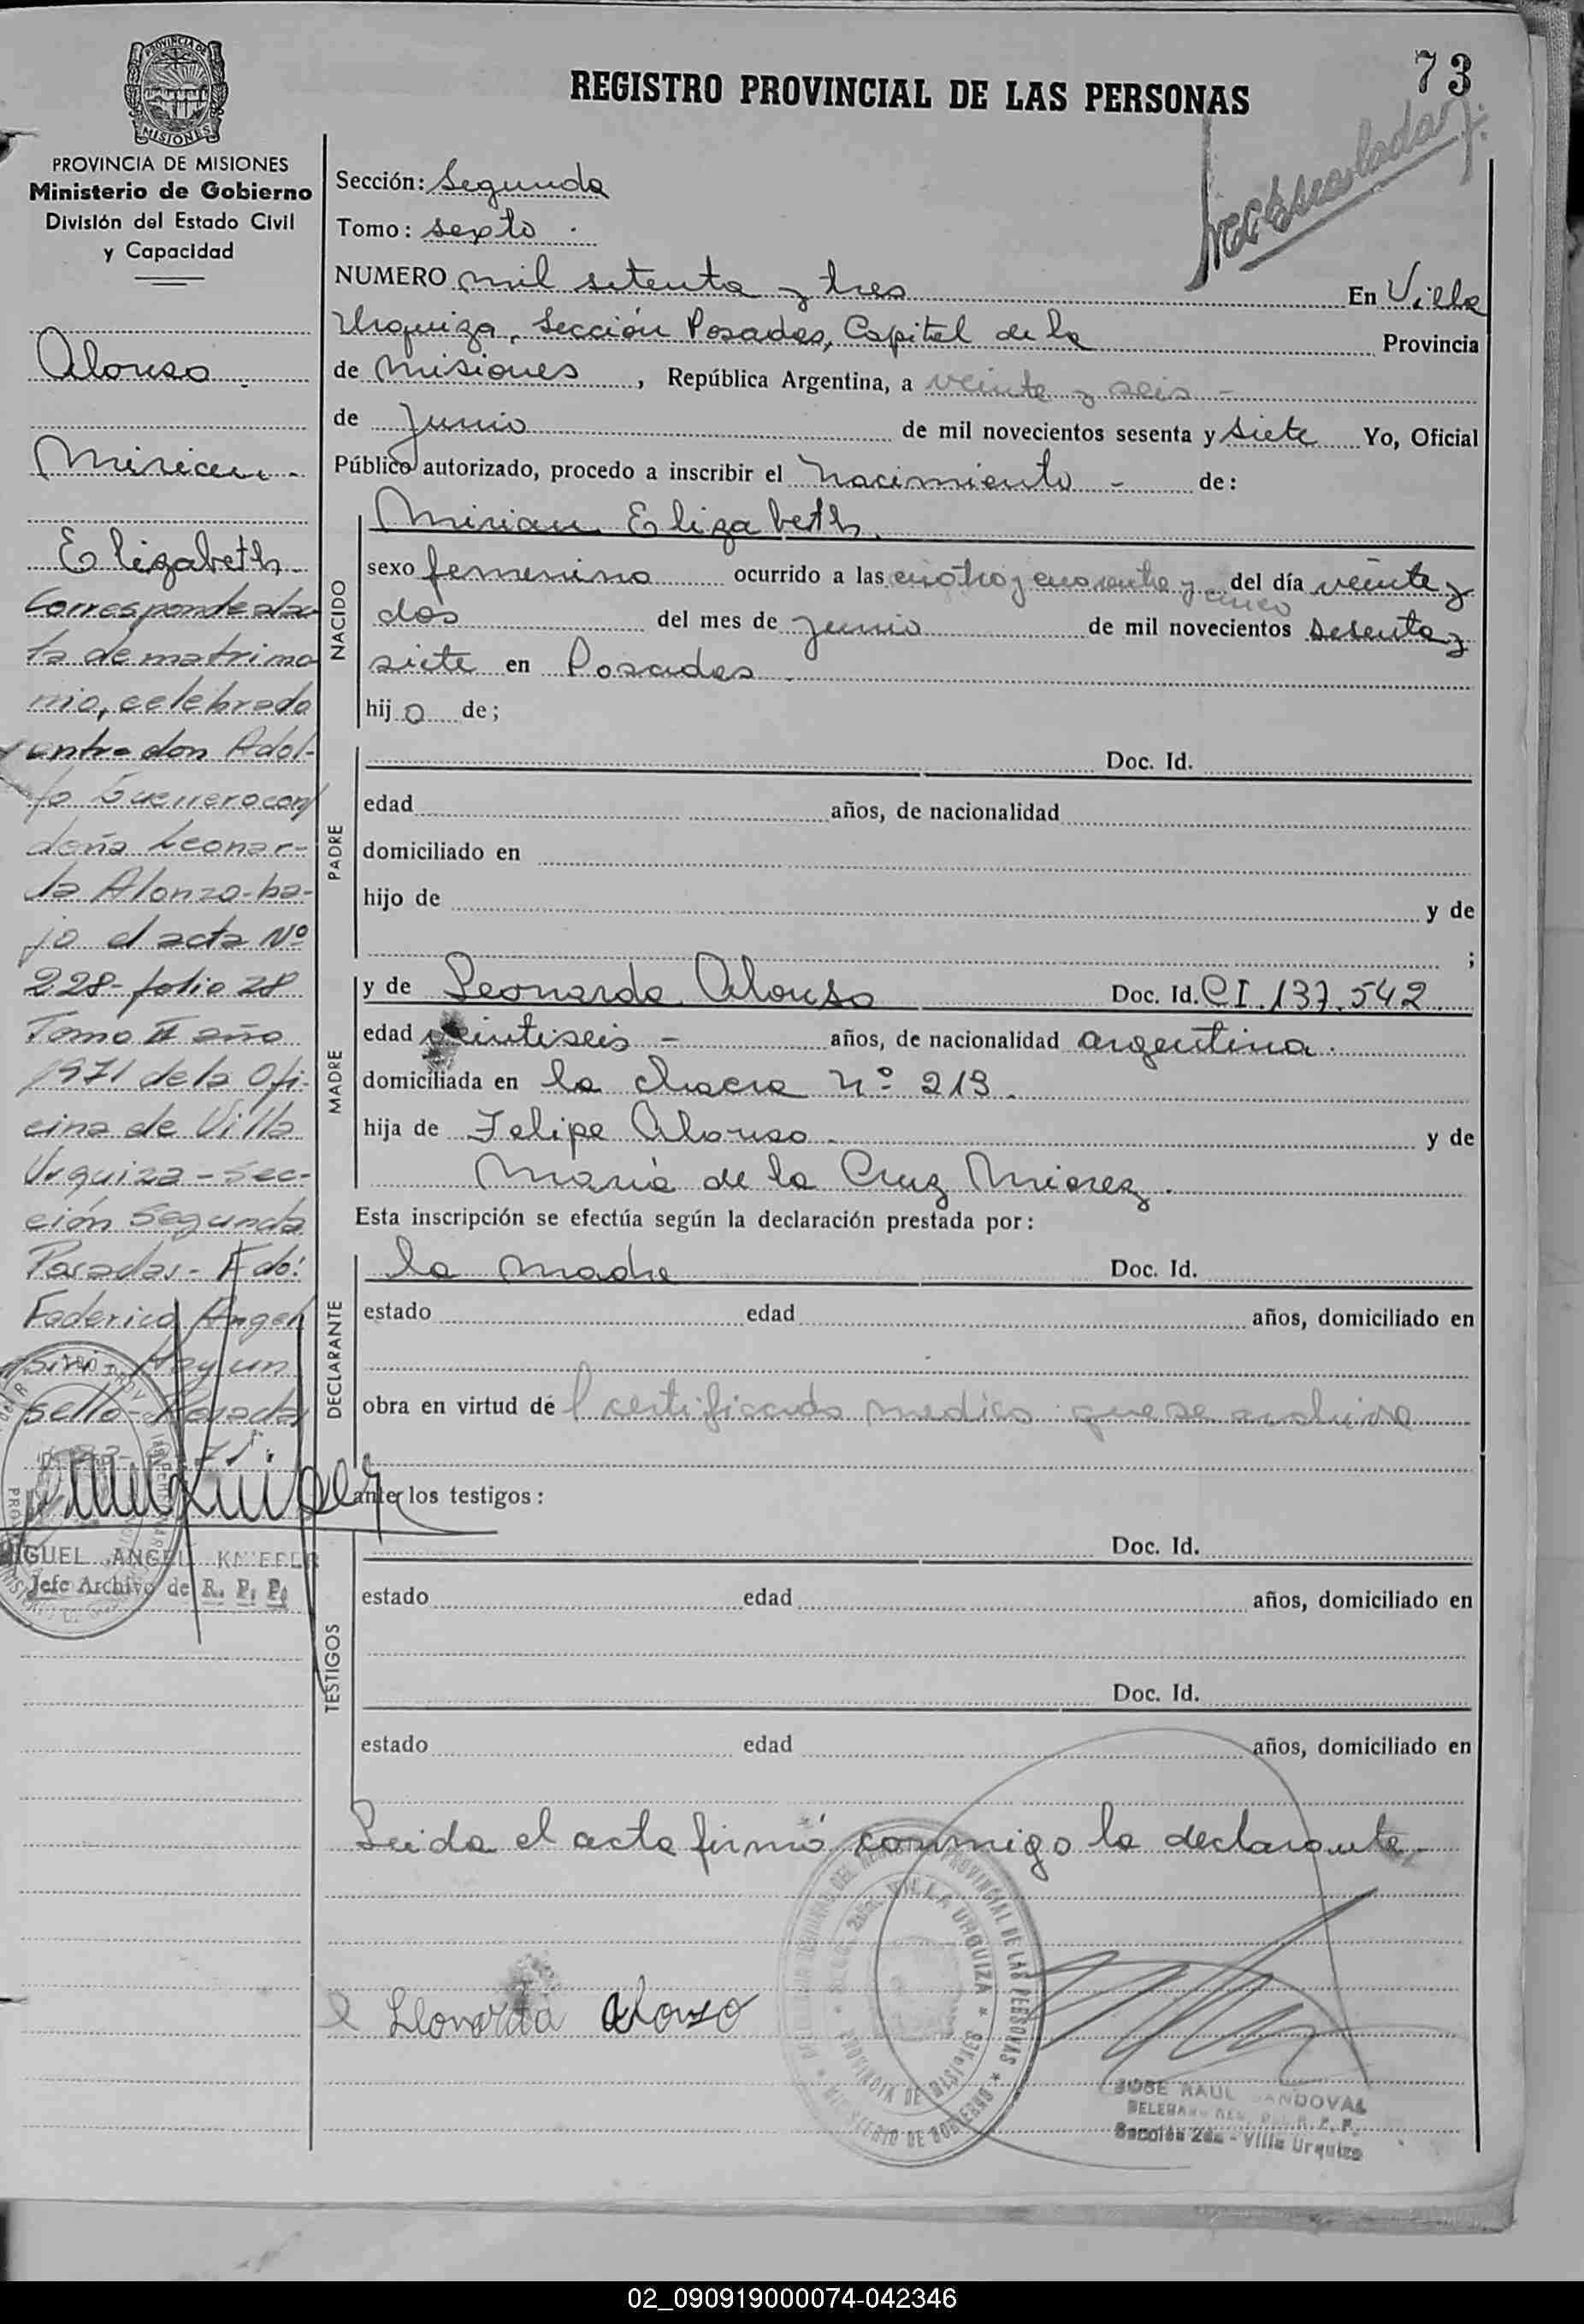 73
REGISTRO PROVINCIAL DE LAS PERSONAS
PROVINCIA DE
MISIONES
PROVINCIA DE MISIONES
Ministerio de Gobierno
División del Estado Civil
y Capacidad
Alonso.
Mirian -
Elizabeth -
Corresponde al ac
ta de matrimo
nio, celebrado
entre don Adol-
fo Guerrero con
doña Leonar-
da Alonzo-ba-
jo el acta Nº
228-folio 28
Tomo II año
1971 de la Ofi-
cina de Villa
Urquiza-Sec-
ción Segunda
Posadas- Fdo:
Federico Angel
Hay un
sello- Posadas
MIGUEL ANGEL KNEFER
Jefe Archivo de R. P. P.
Sección: Segunda
Tomo: sexto.
NUMERO mil setenta y tres En Villa
Urquiza, Sección Posadas, Capital de la Provincia
de Misiones, República Argentina, a veinte y seis -
de Junio de mil novecientos sesenta y siete Yo, Oficial
Público autorizado, procedo a inscribir el nacimiento - de:
NACIDO
Mirian Elizabeth
sexo femenino ocurrido a las cuatro y cuarenta y cinco del día veinte y
dos del mes de junio de mil novecientos sesenta y
siete en Posadas.
hijo de;
PADRE
Doc. Id.
edad años, de nacionalidad
domiciliado en
hijo de y de
;
MADRE
y de Leonarda Alonso Doc. Id. CI.137.542
edad veintiseis - años, de nacionalidad argentina.
domiciliada en la chacra Nº 219.
hija de Felipe Alonso. y de
Maria de la Cruz Mierez.
Esta inscripción se efectúa según la declaración prestada por:
DECLARANTE
la madre Doc. Id.
estado edad años, domiciliado en
obra en virtud del certificado medico que se archiva
ante los testigos:
TESTIGOS
Doc. Id.
estado edad años, domiciliado en
Doc. Id.
estado edad años, domiciliado en
Leida el acta firmó conmigo la declarante -
Llonarda alonso
PROVINCIAL DE LAS PERSONAS
VILLA URQUIZA
PROVINCIA DE MISIONES
MINISTERIO DE GOBIERNO
JOSE RAUL SANDOVAL
R. P. P.
Sección 2da - Villa Urquiza
02_090919000074-042346